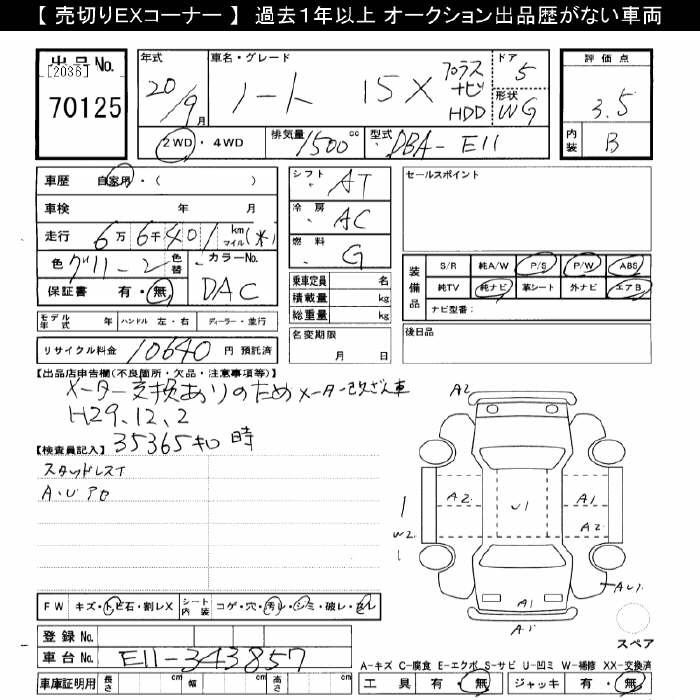 【 売切りEXコーナー 】 過去１年以上 オークション出品歴がない車両
出品No.
[2036]
70125
年式
20/9月
車名・グレード
ノート 15X プラスナビHDD
ドア
5
形状
WG
2WD・4WD
排気量
1500cc
型式
DBA-E11
評価点
3.5
内装
B
車歴 自家用・( )
車検 年 月
走行 6万6千401km マイル(*)
色 グリーン 色替
カラーNo.
DAC
保証書 有・無
モデル年式 年 ハンドル 左・右 ディーラー・並行
リサイクル料金 10640円 預託済
シフト
AT
冷房
AC
燃料
G
乗車定員 名
積載量 kg
総重量 kg
名変期限
月 日
セールスポイント
装備品
S/R 純A/W P/S P/W ABS
純TV 純ナビ 革シート 外ナビ エアB
ナビ型番：
後日品
【出品店申告欄(不良箇所・欠品・注意事項等)】
メーター交換ありのため メーター改ざん車
H29.12.2
35365キロ時
【検査員記入】
スタッドレスT
A・U P0
A2
A2
U1
A1
A2
W2
AU1
A1
A1
スペア
FW キズ・トビ石・割レX
シート内装 コゲ・穴・汚レ・シミ・破レ・スレ
登録No.
車台No. E11-343857
車庫証明用 長さ cm 幅 cm 高さ cm
A-キズ C-腐食 E-エクボ S-サビ U-凹ミ W-補修 XX-交換済
工具 有・無 ジャッキ 有・無